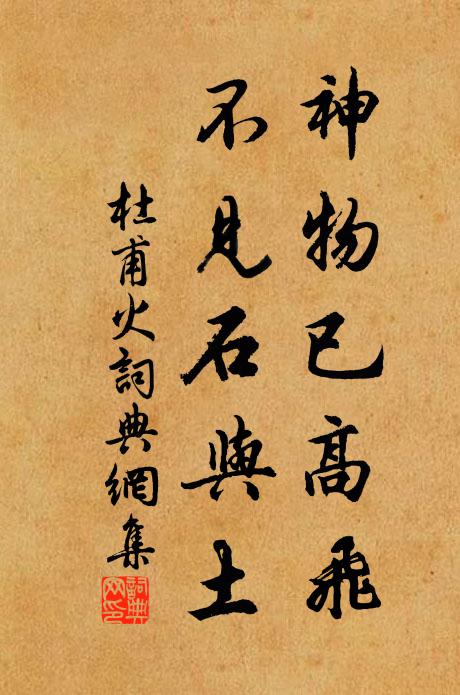 神物已高飛
不見石與土
杜甫火詞典網集
詞典
网印